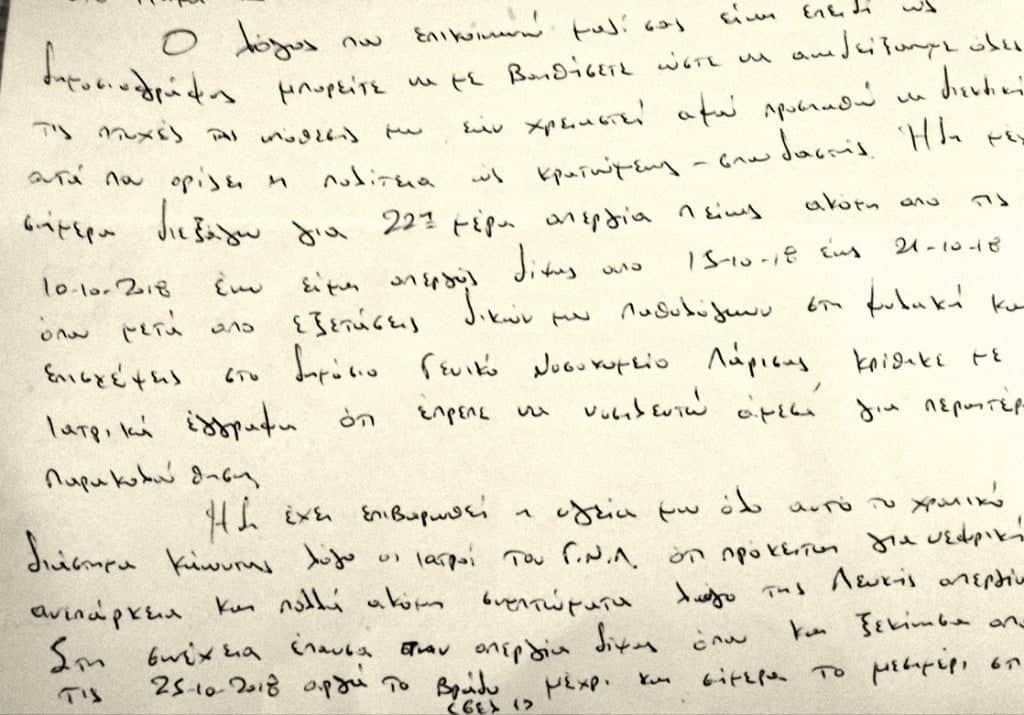 Ο λόγος που επικοινωνώ μαζί σας είναι επειδή ως
δημοσιογράφος μπορείτε να με βοηθήσετε ώστε να αναδείξουμε όλες
τις πτυχές της υπόθεσης μου εάν χρειαστεί αφού προσπαθώ να διεκδική
αυτά που ορίζει η πολιτεία ως κρατούμενος - σπουδαστής. Ήδη μέχ
σήμερα διεξάγω για 22η μέρα απεργία πείνας ακόμη απο τις
10-10-2018 ενώ είμαι απεργός δίψας απο 15-10-18 έως 21-10-18
όπου μετά απο εξετάσεις δικών μου παθολόγων στη φυλακή και
επισκέψεις στο δημόσιο Γενικό Νοσοκομείο Λάρισας κρίθηκε με
Ιατρικά έγγραφα ότι έπρεπε να νοσηλευτώ άμεσα για περαιτέρ
παρακολούθηση
Ήδη έχει επιβαρυνθεί η υγεία μου όλο αυτό το χρονικό
διάστημα κάνοντας λόγο οι Ιατροί του Γ.Ν.Λ. ότι πρόκειται για νεφρική
ανεπάρκεια και πολλά ακόμη συμπτώματα λόγο της Λευκής απεργίας
Στη συνέχεια έπαυσα την απεργία δίψας όπου και ξεκίνησα απο
τις 25-10-2018 αργά το βράδυ μέχρι και σήμερα το μεσημέρι στ
(σελ 1)